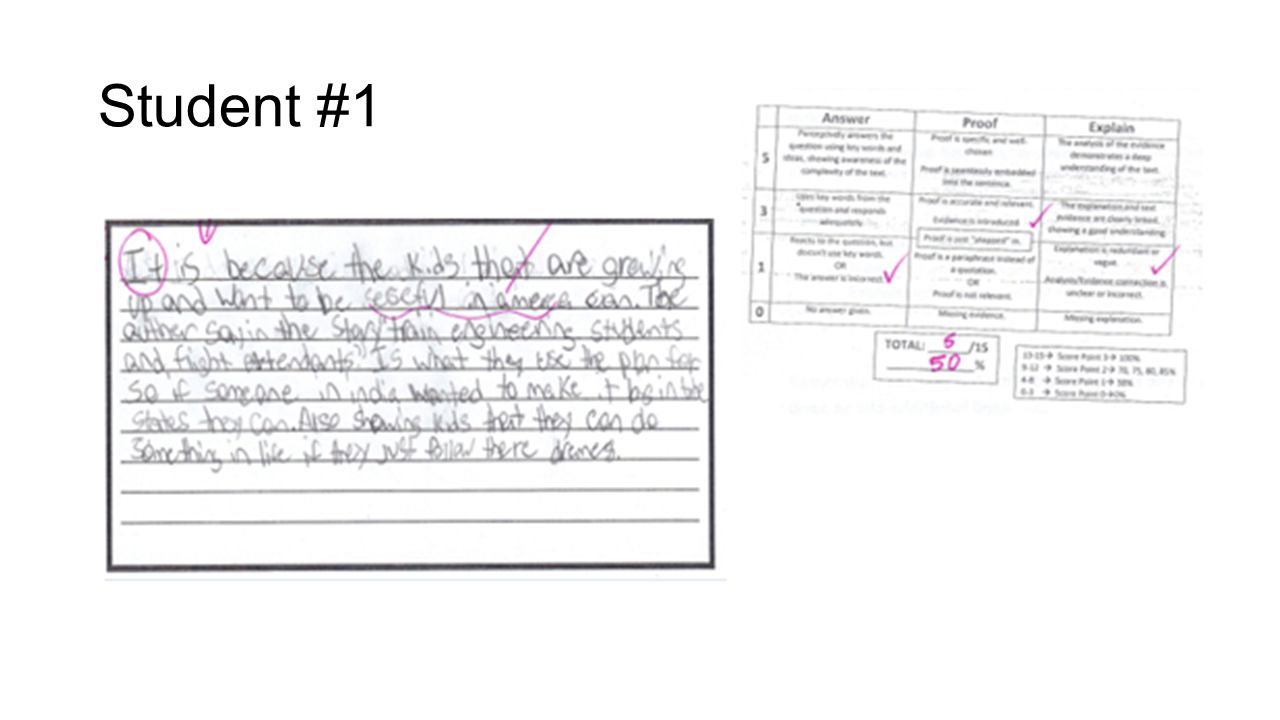 Student #1
It is because the kids that are growing
up and want to be in america can. The
auther say in the story train engineering students
and flight attendants". Is what they use the plan for
so if someone in india wanted to make it big in the
states they can. Also showing kids that they can do
something in life if they just follow there dremes.
Answer
Proof
Explain
5
Perceptively answers the
question using key words and
ideas, showing awareness of the
complexity of the text.
Proof is specific and well-
chosen
Proof is seamlessly embedded
into the sentence.
The analysis of the evidence
demonstrates a deep
understanding of the text.
3
Uses key words from the
question and responds
adequately.
Proof is accurate and relevant.
Evidence is introduced
The explanation and text
evidence are clearly linked,
showing a good understanding
1
Reacts to the question, but
doesn't use key words.
OR
The answer is incorrect.
Proof is just "plopped" in.
Proof is a paraphrase instead of
a quotation.
OR
Proof is not relevant.
Explanation is redundant or
vague.
Analysis/Evidence connection is
unclear or incorrect.
0
No answer given.
Missing evidence.
Missing explanation.
TOTAL: 5 /15
50 %
13-15→ Score Point 3→ 100%
9-12 → Score Point 2→ 70, 75, 80, 85%
4-8 → Score Point 1→ 50%
0-3 → Score Point 0→0%